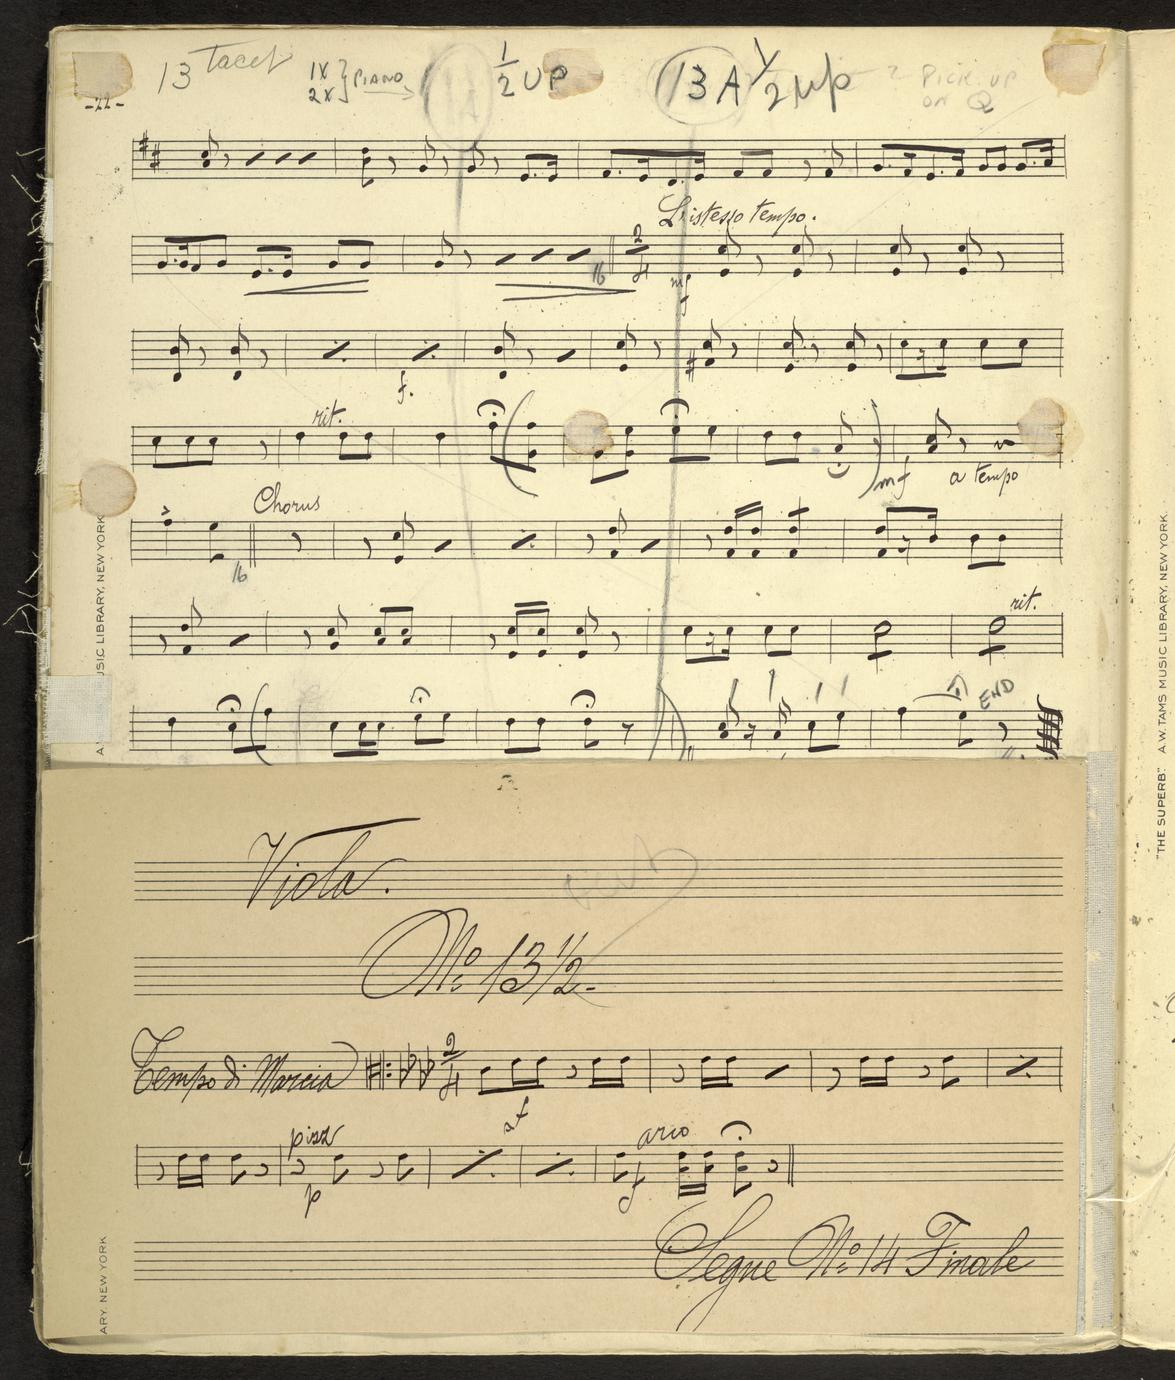 13 tacet 1X 2X } PIANO → 1/2 UP 13A 1/2 up ? PICK UP ON Q
-22-
L'istesso tempo.
16 2/4 mf
f.
rit.
mf a tempo
Chorus
16
rit.
END
Viola.
No. 13 1/2.
Tempo di Marcia 2/4
sf
pizz arco
p f
Segue No. 14 Finale
USIC LIBRARY, NEW YORK
ARY, NEW YORK
"THE SUPERB." A.W. TAMS MUSIC LIBRARY, NEW YORK.